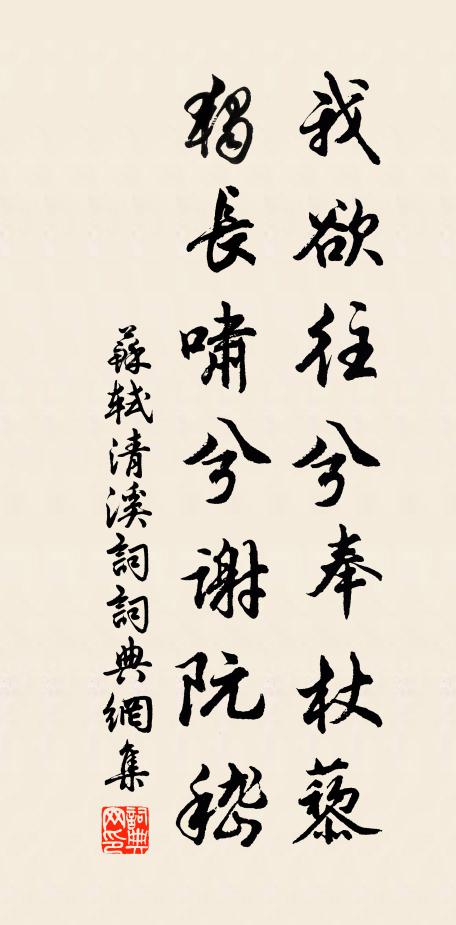 我欲往兮奉杖藜
獨長嘯兮謝阮嵇
蘇軾清溪詞詞典網集
詞典网印